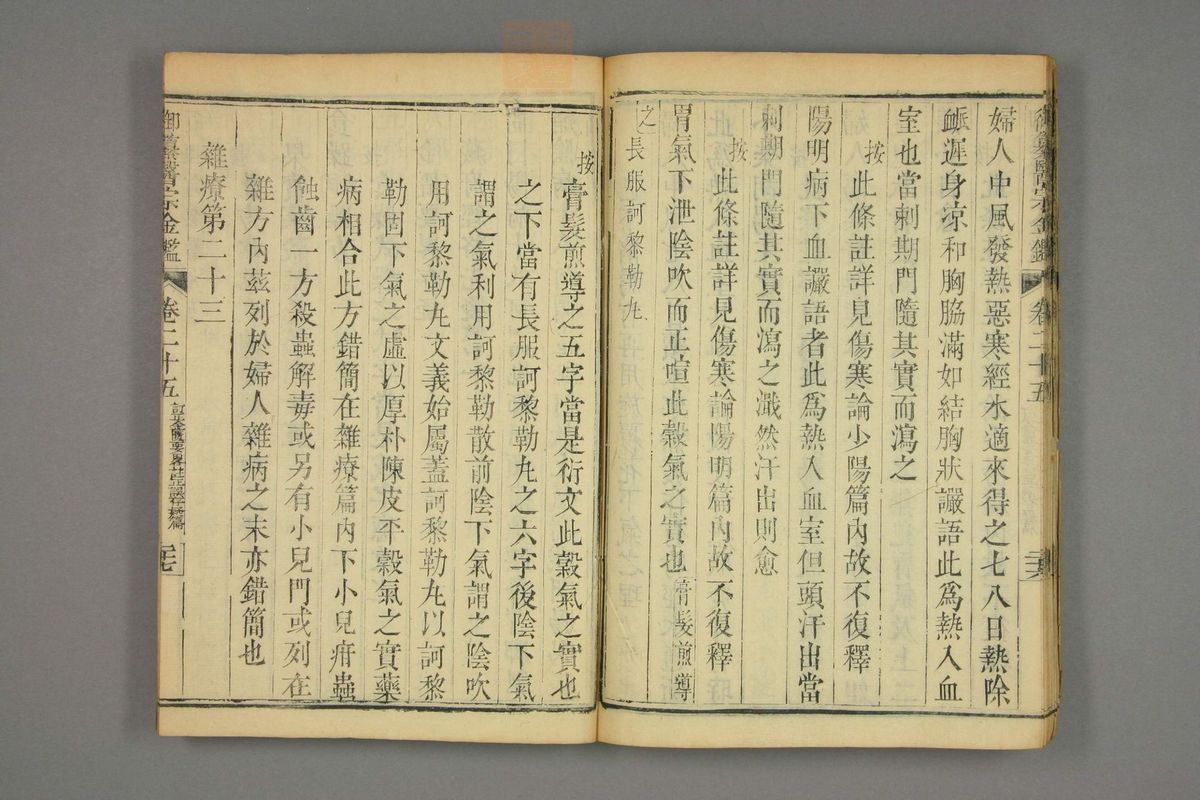 婦人中風發熱惡寒經水適來得之七八日熱除
䘐遲身涼和胸脇滿如結胸狀讝語此為熱入血
室也當刺期門隨其實而瀉之
按此條註詳見傷寒論少陽篇內故不復釋
陽明病下血讝語者此為熱入血室但頭汗出當
刺期門隨其實而瀉之濈然汗出則愈
按此條註詳見傷寒論陽明篇內故不復釋
胃氣下泄陰吹而正喧此榖氣之實也膏髮煎導
之長服訶黎勒丸
按膏髮煎導之五字當是衍文此榖氣之實也
之下當有長服訶黎勒丸之六字後陰下氣
謂之氣利用訶黎勒散前陰下氣謂之陰吹
用訶黎勒丸文義始屬蓋訶黎勒丸以訶黎
勒固下氣之虛以厚朴陳皮平榖氣之實藥
病相合此方錯簡在雜療篇內下小兒疳蟲
蝕齒一方殺蟲解毒或另有小兒門或列在
雜方內茲列於婦人雜病之末亦錯簡也
雜療第二十三
御纂醫宗金鑑 卷二十五